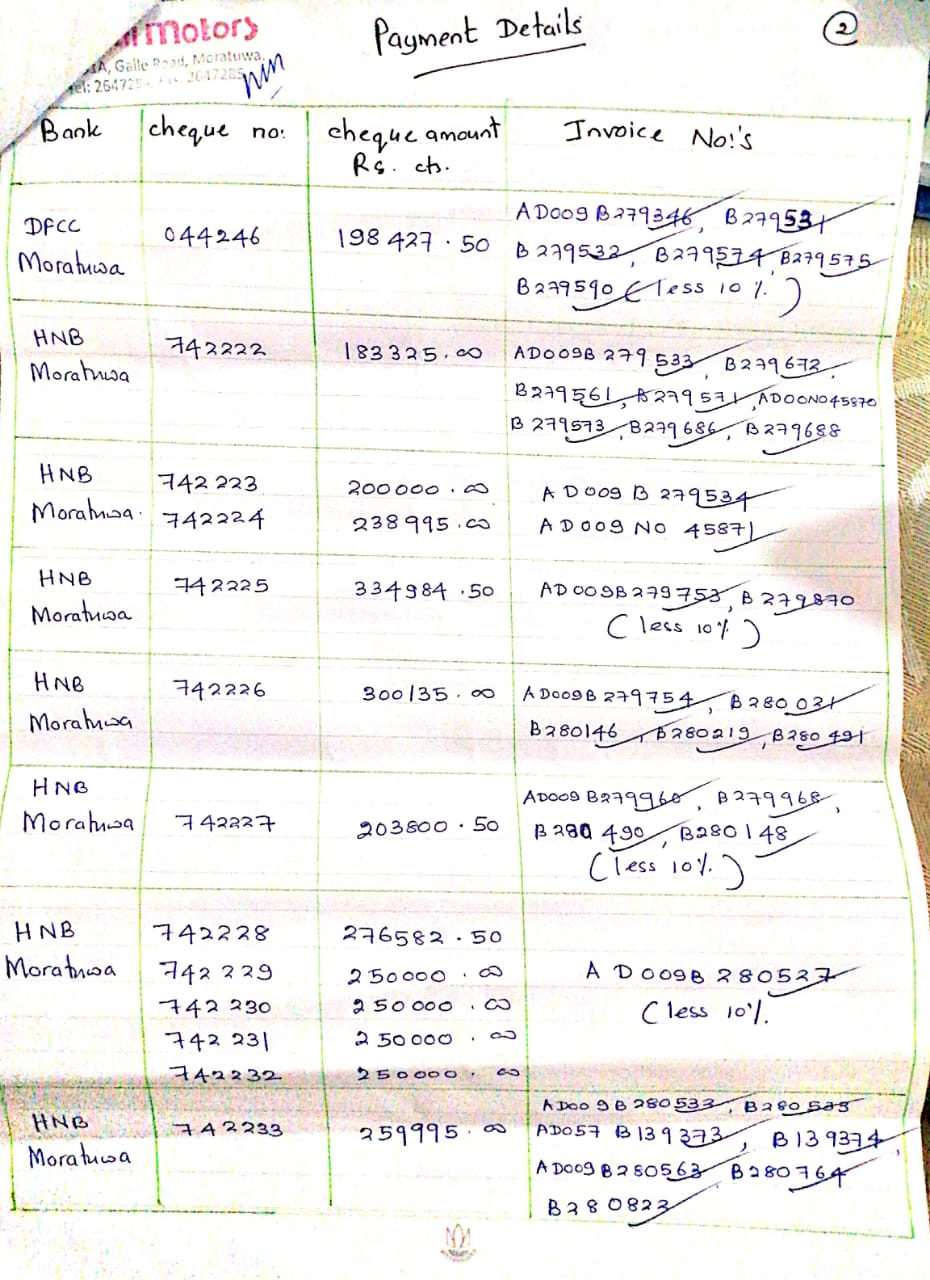 motors
Payment Details
2
A, Galle Road, Moratuwa.
Tel: 264728
2647285
Bank cheque no: cheque amount Invoice No:'s
Rs. cts.
DFCC 044246 198427.50 AD009B279346, B279531
Moratuwa B279532, B279574, B279575
B279590 (less 10%)
HNB 742222 183325.00 AD009B279533, B279672,
Moratuwa B279561, B279571, AD00NO45870
B279573, B279686, B279688
HNB 742223 200000.00 AD009B279534
Moratuwa. 742224 238995.00 AD009NO 45871
HNB 742225 334984.50 AD009B279753, B279870
Moratuwa (less 10%)
HNB 742226 300135.00 AD009B279754, B280031
Moratuwa B280146, B280219, B280491
HNB AD009B279960, B279968,
Moratuwa 742227 203800.50 B280490, B280148
(less 10%)
HNB 742228 276582.50
Moratuwa 742229 250000.00 AD009B280527
742230 250000.00 (less 10%.
742231 250000.00
742232 250000.00
AD009B280533, B280535
HNB 742233 259995.00 AD057 B139373, B139374,
Moratuwa AD009B280563, B280764
B280823